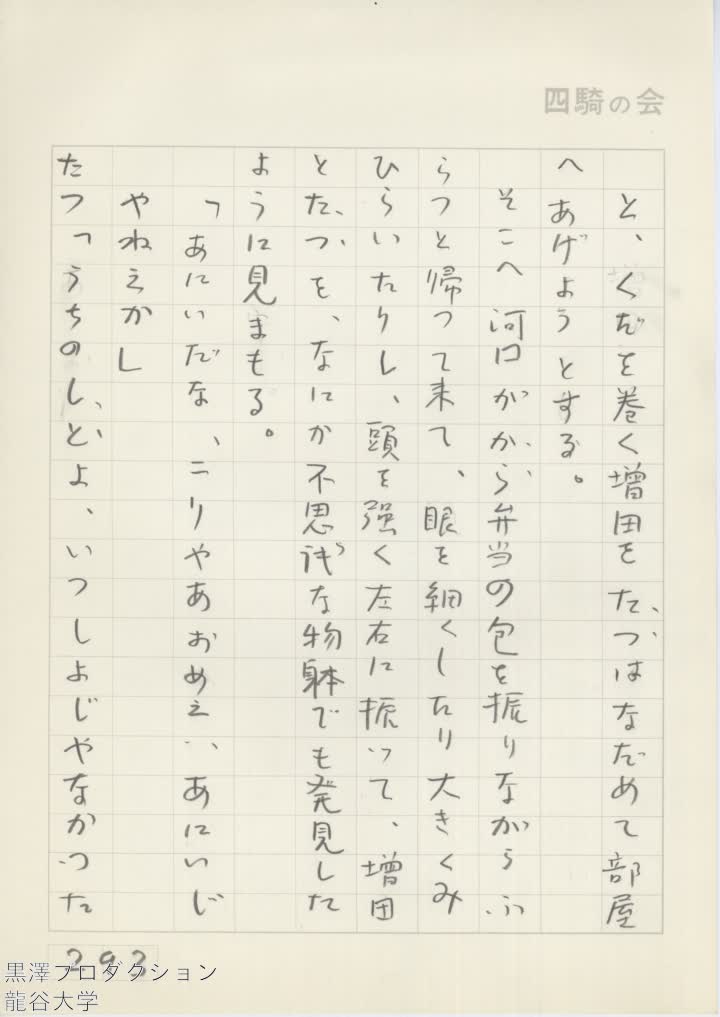 四騎の会
と、くだを巻く増田をたつはなだめて部屋
へあげようとする。
そこへ河口がから弁当の包を振りながらふ
らつと帰って来て、眼を細くしたり大きくみ
ひらいたりし、頭を強く左右に振って、増田
とたつを、なにか不思議な物体でも発見した
ように見まもる。
「あにいだな、こりやあおめえ、あにいじ
やねえか」
たつ「うちのしとよ、いつしよじやなかつた
293
黒澤プロダクション
龍谷大学